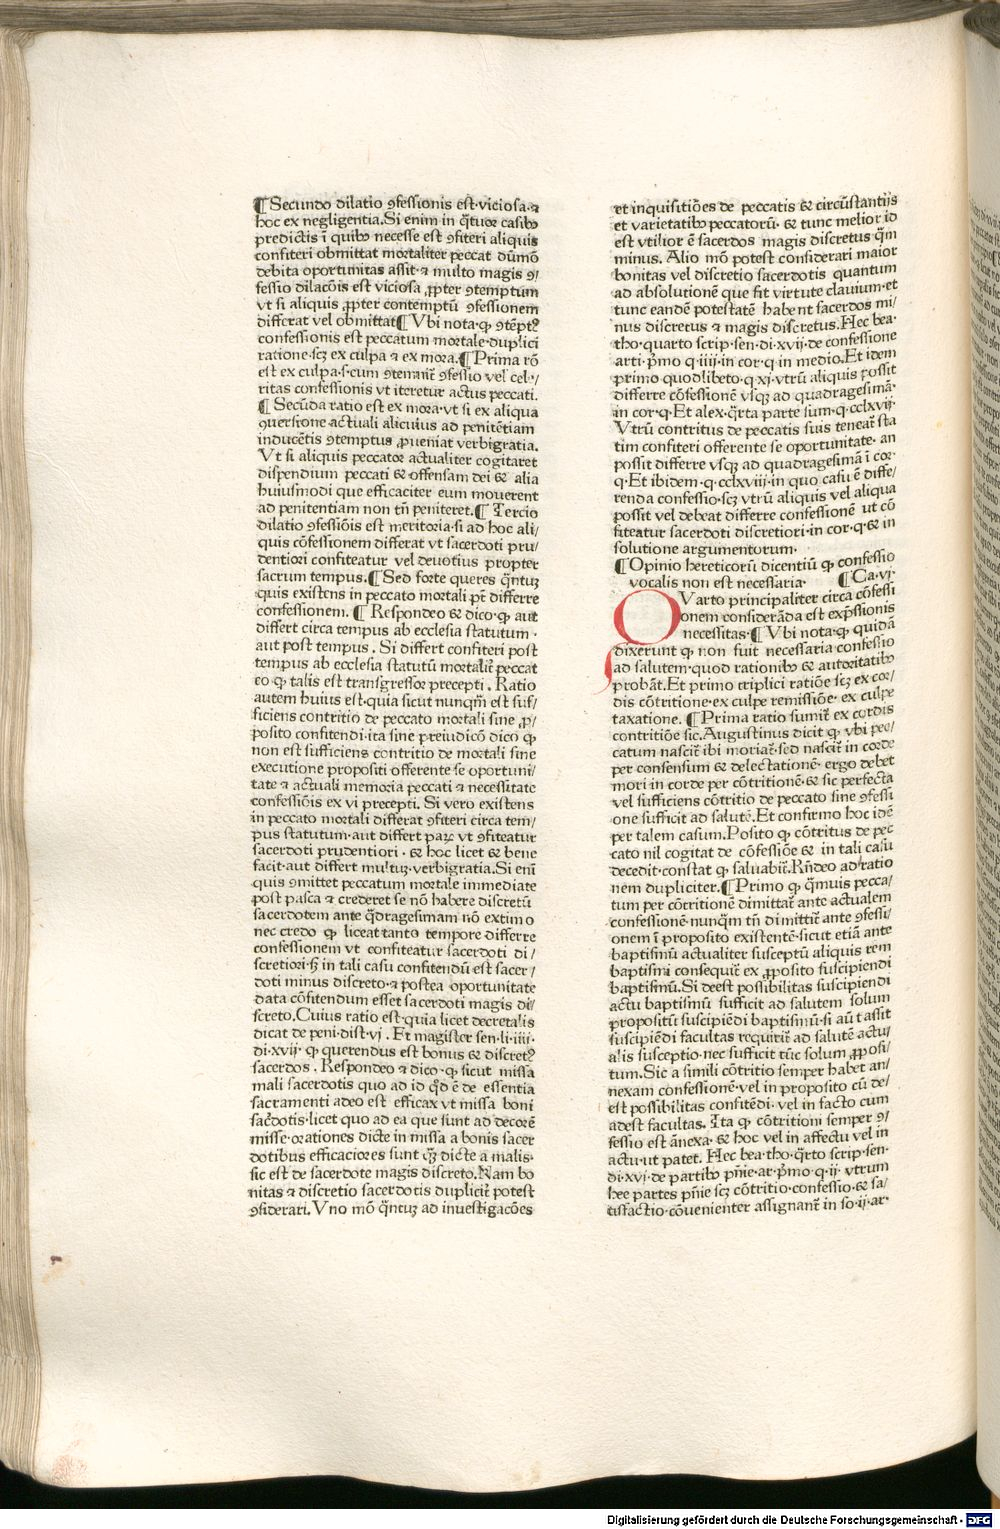 ¶ Secundo dilatio ꝯfessionis est·viciosa·⁊
hoc ex negligentia.Si enim in q̄tuor casibꝰ
predictis ī quibꝰ necesse est ꝯfiteri aliquis
confiteri obmittat mortaliter peccat dūmō
debita oportunitas assit·⁊ multo magis ꝯ/
fessio dilacōis est viciosa ꝓpter ꝯtemptum
vt si aliquis ꝓpter contemptū ꝯfessionem
differat vel obmittat¶ Vbi nota·ꝙ ꝯtēptꝰ
confessionis est peccatum mortale·duplici
ratione·scꝫ ex culpa ⁊ ex mora.¶ Prima rō
est ex culpa·s·cum ꝯtemnit᷑ ꝯfessio vel cel·/
ritas confessionis vt iteretur actus peccati.
¶ Secūda ratio est ex mora·vt si ex aliqua
ꝯuersione actuali alicuius ad penitētiam
inducētis ꝯtemptus ꝓueniat verbigratia.
Vt si aliquis peccator actualiter cogitaret
dispendium peccati & offensam dei & alia
huiusmodi que efficaciter eum mouerent
ad penitentiam non tn̄ peniteret.¶ Tercio
dilatio ꝯfessiōis est meritoria·si ad hoc ali/
quis cōfessionem differat vt sacerdoti pru/
dentiori confiteatur vel deuotius propter
sacrum tempus.¶ Sed forte queres q̄ntuꝫ
quis existens in peccato mortali pt̄ differre
confessionem. ¶ Respondeo & dico·ꝙ aut
differt circa tempus ab ecclesia statutum ·
aut post tempus . Si differt confiteri post
tempus ab ecclesia statutū mortalit᷑ peccat
eo ꝙ talis est transgressor precepti . Ratio
autem huius est·quia sicut nunqm̄ est suf/
ficiens contritio de peccato mortali sine ꝓ/
posito confitendi·ita sine preiudicō dico ꝙ
non est sufficiens contritio de mortali sine
executione propositi offerente se oportuni/
tate ⁊ actuali memoria peccati ⁊ necessitate
confessiōis ex vi precepti. Si vero existens
in peccato mortali differat ꝯfiteri circa tem/
pus statutum·aut differt paꝝ vt ꝯfiteatur
sacerdoti prudentiori · & hoc licet & bene
facit·aut differt multuꝫ·verbigratia.Si eni
quis ꝯmittet peccatum mortale immediate
post pasca ⁊ crederet se nō habere discretū
sacerdotem ante q̄dragesimam nō extimo
nec credo ꝙ liceat tanto tempore differre
confessionem vt confiteatur sacerdoti di/
scretiori·sꝫ in tali casu confitendū est sacer/
doti minus discreto·⁊ postea oportunitate
data cōfitendum esset sacerdoti magis di/
screto.Cuius ratio est·quia licet decretalis
dicat de peni·dist·vj . Et magister sen·li·iiij·
di·xvij· ꝙ querendus est bonus & discretꝰ
sacerdos . Respondeo ⁊ dico·ꝙ sicut missa
mali sacerdotis quo ad id qd̄ ē de essentia
sacramenti adeo est efficax vt missa boni
sacd̄otis·licet quo ad ea que sunt ad decorē
misse·orationes dicte in missa a bonis sacer
dotibus efficaciores sunt qꝫ dicte a malis·
sic est de sacerdote magis discreto.Nam bo
nitas ⁊ discretio sacerdotis duplicit᷑ potest
ꝯsiderari. Vno mō q̄ntuꝫ ad inuestigacōes
et inquisitiōes de peccatis & circūstantijs
et varietatibꝰ peccatorū· & tunc melior id
est vtilior ē sacerdos magis discretus qm̄
minus. Alio mō potest considerari maior
bonitas vel discretio sacerdotis quantum
ad absolutionē que fit virtute clauium·et
tunc eandē potestatē habent sacerdos mi/
nus discretus ⁊ magis discretus.Hec bea·
tho·quarto scrip·sen·di·xvij·de confessione
arti·pͥmo q·iiij·in cor·q·in medio.Et idem
primo quodlibeto·q·xj·vtrū aliquis possit
differre cōfessionē vsqꝫ ad quadragesimā·
in cor·q·Et alex·q̄rta parte sum·q·cclxvij·
Vtrū contritus de peccatis suis teneat᷑ sta
tim confiteri offerente se oportunitate· an
possit differre vsqꝫ ad quadragesimā ī cor·
q·Et ibidem·q·cclxviij·in quo casu ē diffe/
renda confessio·scꝫ vtrū aliquis vel aliqua
possit vel debeat differre confessionē ut cō
fiteatur sacerdoti discretiori·in cor·q·& in
solutione argumentorum·
¶ Opinio hereticorū dicentiū ꝙ confessio
vocalis non est necessaria· ¶ Ca·vj·
QVarto principaliter circa cōfessi
onem considerāda est exp̄ssionis
necessitas·¶ Vbi nota·ꝙ quidā
dixerunt ꝙ non fuit necessaria confessio
ad salutem·quod rationibꝰ & autoritatibꝰ
probāt.Et primo triplici ratiōe scꝫ ex cor/
dis cōtritione·ex culpe remissiōe· ex culpe
taxatione. ¶ Prima ratio sumit᷑ ex cordis
contritiōe sic.Augustinus dicit ꝙ vbi pec/
catum nascit᷑ ibi moriat᷑·sed nascit᷑ in corde
per consensum & delectationē· ergo debet
mori in corde per cōtritionē·& sic perfecta
vel sufficiens cōtritio de peccato sine ꝯfessi
one sufficit ad salutē.Et confirmo hoc idē
per talem casum.Posito ꝙ cōtritus de pec
cato nil cogitat de cōfessiōe & in tali casu
decedit·constat ꝙ saluabit᷑.Rn̄deo ad ratio
nem dupliciter.¶ Primo ꝙ q̄muis pecca/
tum per cōtritionē dimittat᷑ ante actualem
confessionē·nunqm̄ tn̄ dimittit᷑ ante ꝯfessi/
onem ī proposito existentē·sicut etiā ante
baptismū actualiter susceptū aliquis rem
baptismi consequit᷑ ex ꝓposito suscipiendi
baptismū.Si deest possibilitas suscipiendi
actu baptismū sufficit ad salutem solum
propositū suscipiēdi baptismū·si aūt assit
suscipiēdi facultas requirit᷑ ad salutē actu/
alis susceptio·nec sufficit tūc solum ꝓposi/
tum.Sic a simili cōtritio semper habet an/
nexam confessionē·vel in proposito cū de/
est possibilitas confitēdi· vel in facto cum
adest facultas. Ita ꝙ cōtritioni semper ꝯ/
fessio est ānexa·& hoc vel in affectu vel in
actu·ut patet. Hec bea·tho·q̄rto scrip·sen·
di·xvj·de partibꝰ pn̄ie·ar·pͥmo·q·ij· vtrum
hee partes pn̄ie scꝫ cōtritio·confessio·& sa/
tisfactio·cōuenienter assignant᷑ in so·ij·ar·
Digitalisierung gefördert durch die Deutsche Forschungsgemeinschaft - DFG